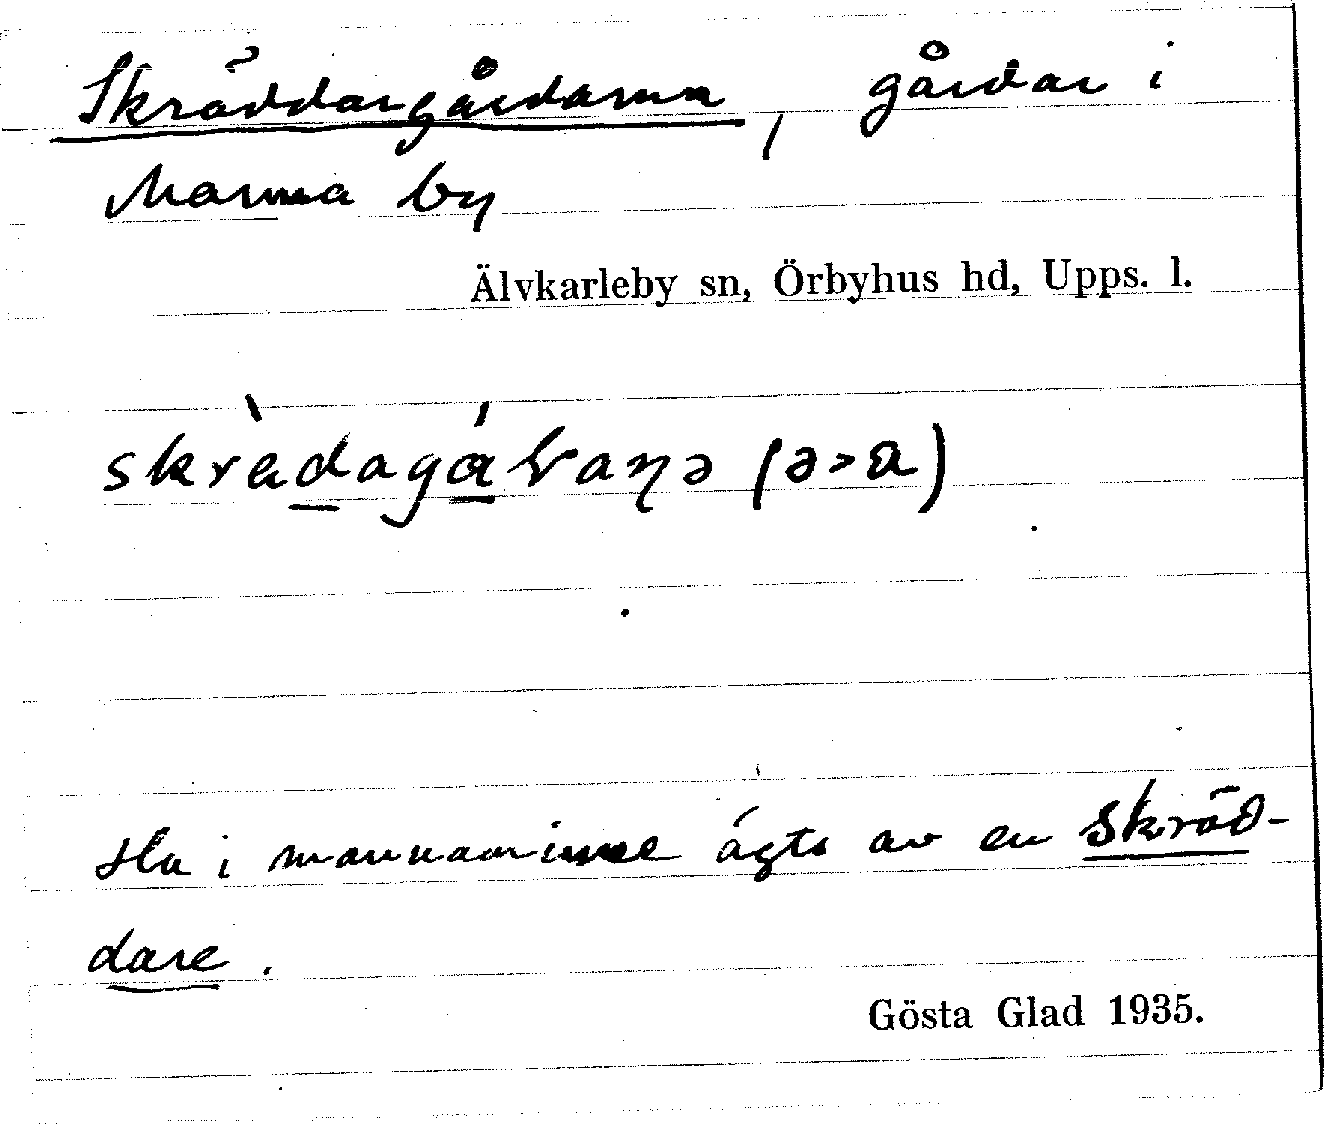 Skräddargårdarna, gårdar i
Marma by
Älvkarleby sn, Örbyhus hd, Upps. l.
(ə>a)
i mannaminne ägts av en Skräd-
dare.
Gösta Glad 1935.